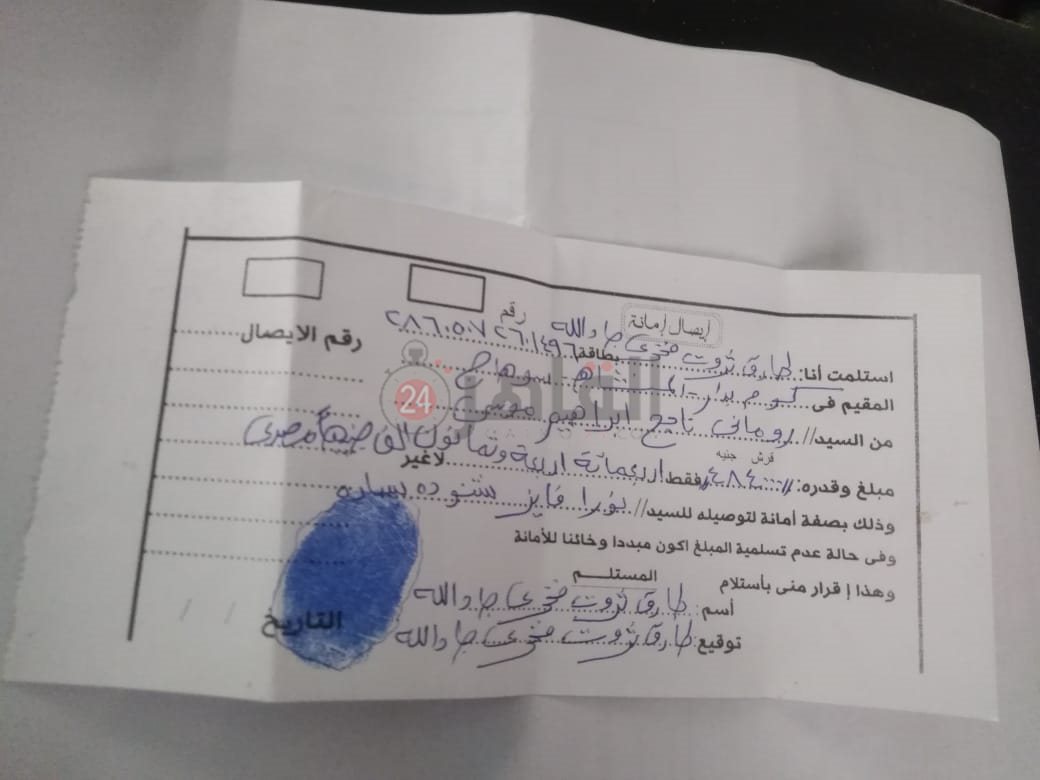 إيصال أمانة
رقم الايصال
استلمت أنا: طارق ثروت فخرى جادالله بطاقة رقم ٢٨٦٠٥٠٧٢٦٠١٤٩٦
المقيم فى كوم بدار سوهاج
من السيد// رومانى ناجح ابراهيم موسى
قرش جنيه
مبلغ وقدره: فقط اربعمائة اربعة وثمانون الف جنيها مصرى لاغير
وذلك بصفة أمانة لتوصيله للسيد// نورا فايز شنوده بشاره
وفى حالة عدم تسلمية المبلغ اكون مبددا وخائنا للأمانة
وهذا إقرار منى بأستلام
المستلم
أسم: طارق ثروت فخرى جادالله
توقيع: طارق ثروت فخرى جادالله
التاريخ
القاهرة
24